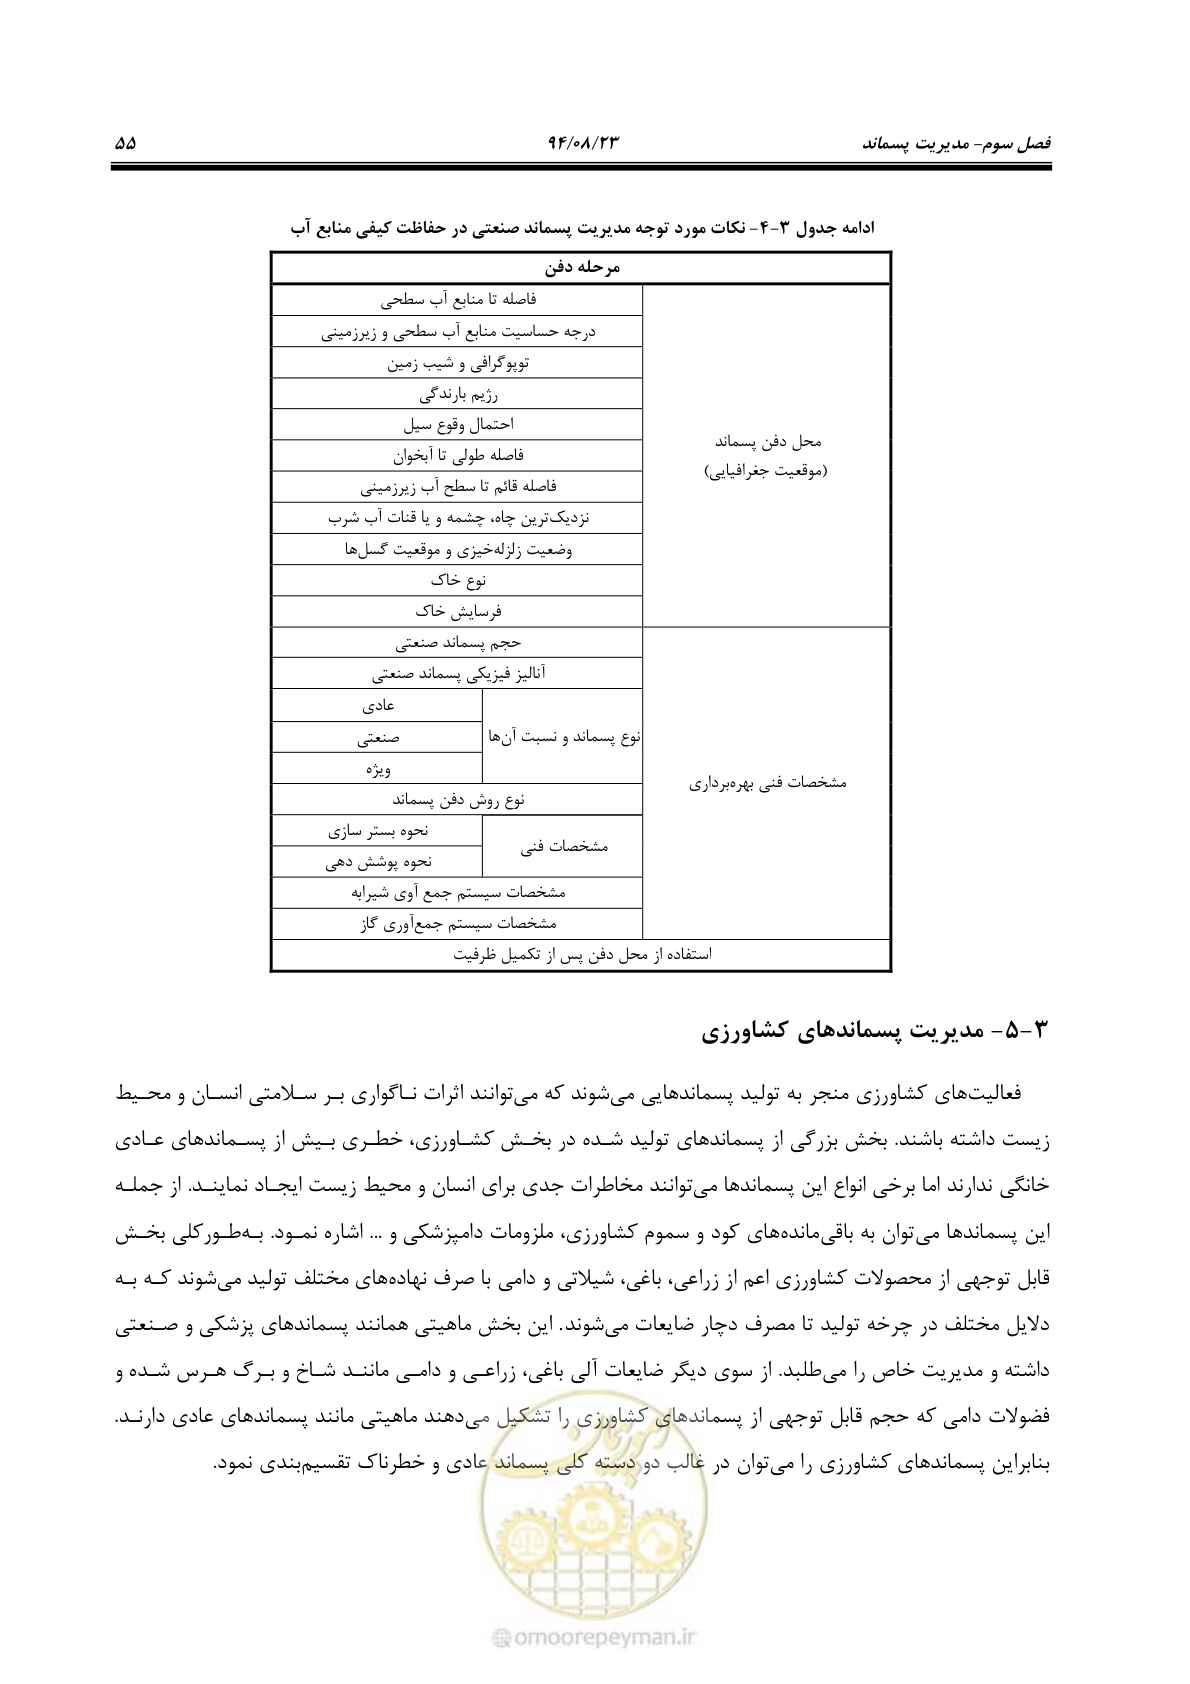 فصل سوم- مدیریت پسماند ۹۴/۰۸/۲۳ ۵۵
ادامه جدول ۳-۴- نکات مورد توجه مدیریت پسماند صنعتی در حفاظت کیفی منابع آب
مرحله دفن
محل دفن پسماند
(موقعیت جغرافیایی)
فاصله تا منابع آب سطحی
درجه حساسیت منابع آب سطحی و زیرزمینی
توپوگرافی و شیب زمین
رژیم بارندگی
احتمال وقوع سیل
فاصله طولی تا آبخوان
فاصله قائم تا سطح آب زیرزمینی
نزدیک‌ترین چاه، چشمه و یا قنات آب شرب
وضعیت زلزله‌خیزی و موقعیت گسل‌ها
نوع خاک
فرسایش خاک
مشخصات فنی بهره‌برداری
حجم پسماند صنعتی
آنالیز فیزیکی پسماند صنعتی
نوع پسماند و نسبت آن‌ها
عادی
صنعتی
ویژه
نوع روش دفن پسماند
مشخصات فنی
نحوه بستر سازی
نحوه پوشش دهی
مشخصات سیستم جمع آوی شیرابه
مشخصات سیستم جمع‌آوری گاز
استفاده از محل دفن پس از تکمیل ظرفیت
۳-۵- مدیریت پسماندهای کشاورزی
فعالیت‌های کشاورزی منجر به تولید پسماندهایی می‌شوند که می‌توانند اثرات نـاگواری بـر سـلامتی انسـان و محـیط
زیست داشته باشند. بخش بزرگی از پسماندهای تولید شـده در بخـش کشـاورزی، خطـری بـیش از پسـماندهای عـادی
خانگی ندارند اما برخی انواع این پسماندها می‌توانند مخاطرات جدی برای انسان و محیط زیست ایجـاد نماینـد. از جملـه
این پسماندها می‌توان به باقی‌مانده‌های کود و سموم کشاورزی، ملزومات دامپزشکی و ... اشاره نمـود. بـه‌طـورکلی بخـش
قابل توجهی از محصولات کشاورزی اعم از زراعی، باغی، شیلاتی و دامی با صرف نهاده‌های مختلف تولید می‌شوند کـه بـه
دلایل مختلف در چرخه تولید تا مصرف دچار ضایعات می‌شوند. این بخش ماهیتی همانند پسماندهای پزشکی و صـنعتی
داشته و مدیریت خاص را می‌طلبد. از سوی دیگر ضایعات آلی باغی، زراعـی و دامـی ماننـد شـاخ و بـرگ هـرس شـده و
فضولات دامی که حجم قابل توجهی از پسماندهای کشاورزی را تشکیل می‌دهند ماهیتی مانند پسماندهای عادی دارنـد.
بنابراین پسماندهای کشاورزی را می‌توان در غالب دو دسته کلی پسماند عادی و خطرناک تقسیم‌بندی نمود.
امور پیمان
omoorepeyman.ir